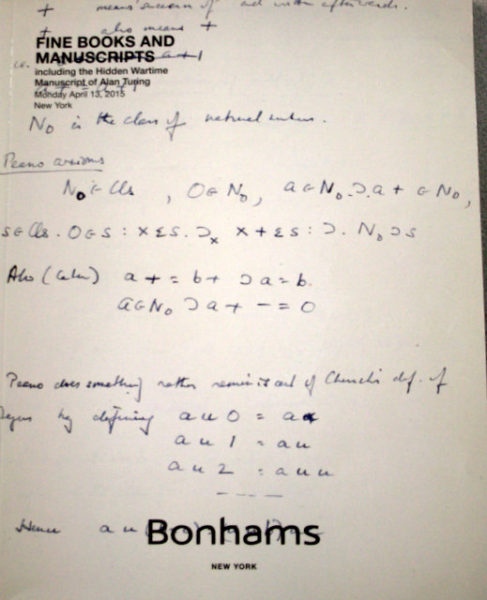 + means successor of and with afterwards.
+ also means +
FINE BOOKS AND
MANUSCRIPTS
including the Hidden Wartime
Manuscript of Alan Turing
Monday April 13, 2015
New York
N₀ is the class of natural numbers.
Peano axioms
N₀ ∈ Cls , O ∈ N₀, a ∈ N₀ .Ɔ. a + ∈ N₀,
s ∈ Cls . O ∈ s : x ε s . Ɔₓ x + ε s : Ɔ. N₀ Ɔ s
Also (later) a + = b + Ɔ a = b.
a ∈ N₀ Ɔ a + - = 0
Peano does something rather reminiscent of Church's def. of
by defining a u 0 = a
a u 1 = a u
a u 2 = a u u
- - - -
Hence a u
Bonhams
NEW YORK